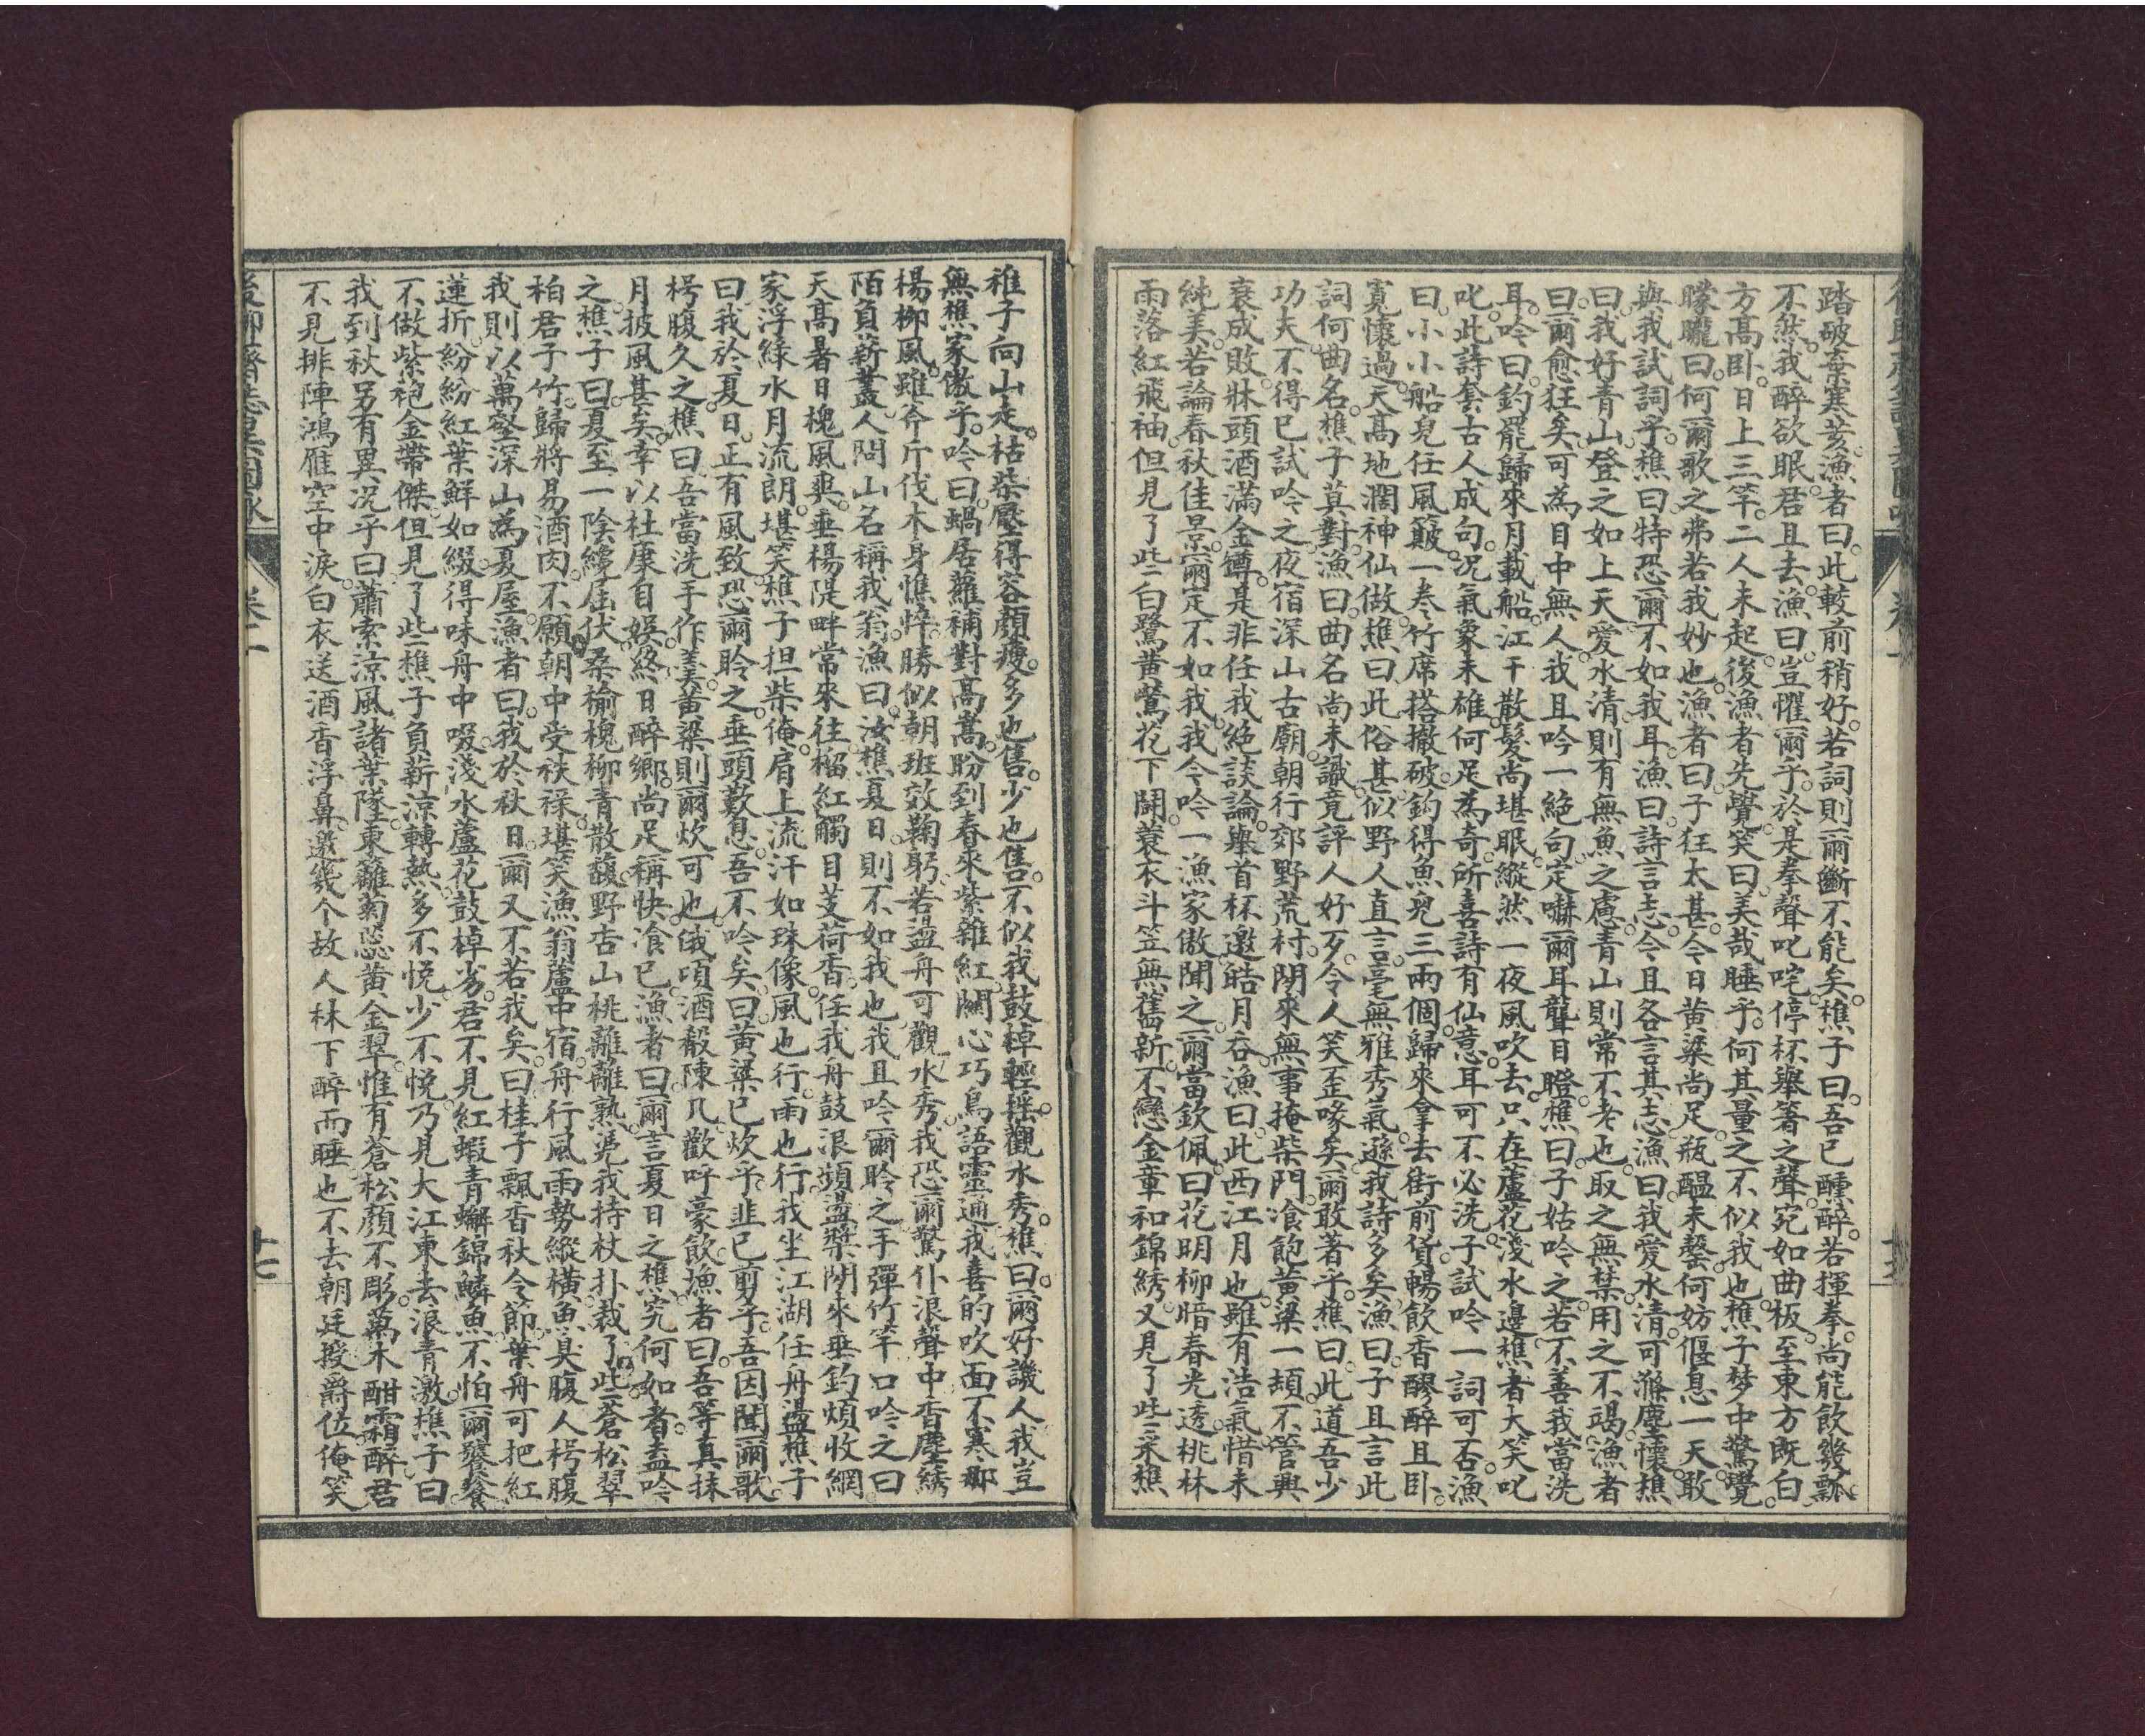 踏破棄寒荄。漁者曰。此較前稍好。若詞則爾斷不能矣。樵子曰。吾已醺醉。若揮拳。尚能飲幾瓢。
不然。我醉欲眠。君且去。漁曰。豈懼爾乎。於是拳聲叱咤。停杯舉箸之聲。宛如曲板。至東方既白。
方高卧。日上三竿。二人未起。後漁者先覺。笑曰。美哉睡乎。何其量之不似我也。樵子梦中驚覺。
朦朧曰。何爾歌之弗若我妙也。漁者曰。子狂太甚。今日黃粱尚足。瓶醞未罄。何妨偃息一天。敢
與我試詞乎。樵曰。特恐爾不如我耳。漁曰。詩言志。今且各言其志。漁曰。我愛水清。可滌塵懷。樵
曰。我好青山。登之如上天。愛水清。則有無魚之慮。青山則常不老也。取之無禁。用之不竭。漁者
曰。爾愈狂矣。可為目中無人。我且吟一絶句。定嚇爾耳聾目瞪。樵曰。子姑吟之。若不善。我當洗
耳。吟曰。釣罷歸來月載船。江干散髮尚堪眠。縱然一夜風吹去。只在蘆花淺水邊。樵者大笑叱
叱。此詩套古人成句。况氣象未雄。何足為奇。所喜詩有仙意。耳可不必洗。子試吟一詞可否。漁
曰。小小船兒任風簸。一卷竹席搭撤破。釣得魚兒三兩個。歸來拿去街前貨。暢飲香醪醉且卧。
寛懷過。天高地濶神仙做。樵曰。此俗甚。似野人直言。毫無雅秀氣。遜我詩多矣。漁曰。子且言此
詞何曲名。樵子莫對。漁曰。曲名尚未識。竟評人好歹。令人笑歪喙矣。爾敢著乎。樵曰。此道吾少
功夫。不得已試吟之。夜宿深山古廟。朝行郊野荒村。閒來無事掩柴門。飡飽黃粱一頓。不管興
衰成敗。牀頭酒滿金罇。是非任我絶談論。舉首杯邀皓月吞。漁曰。此西江月也。雖有浩氣。惜未
純美。若論春秋佳景。爾定不如我。我今吟一漁家傲聞之。爾當欽佩。曰。花明柳暗春光透。桃林
雨落紅飛袖。但見了些二白鷺黃鶯花下鬪。蓑衣斗笠無舊新。不戀金章和錦綉。又見了些三采樵
稚子向山走。枯柴壓得容顏瘦。多也售。少也售。不似我鼓棹輕搖觀水秀。樵曰。爾好譏人。我豈
無樵家傲乎。吟曰。蝸居蘿補對高嵩。盼到春來紫雜紅。關心巧鳥語靈通。我喜的吹面不寒楊
楊柳風。雖斧斤伐木身憔悴。勝似朝班效鞠躬。若盪舟可觀水秀。我恐爾驚仆浪聲中。香塵綉
陌負薪藎。人問山名稱我翁。漁曰。汝樵夏日則不如我也。我且吟。爾聆之。手彈竹竿。口吟之曰
天高暑日槐風爽。垂楊隄畔常來往。榴紅觸目芰荷香。任我舟鼓浪頻盪槳。閒來垂釣煩收網。
家浮綠水月流朗。堪笑樵子担柴俺。肩上流汗如珠像。風也行。雨也行。我坐江湖任舟盪。樵子
曰。我於夏日。正有風致。恐爾聆之。垂頭歎息。吾不吟矣。曰。黃粱已炊乎。韭已剪乎。吾因聞爾歌。
枵腹久之。樵曰。吾當洗手作羹。黃粱則爾炊可也。俄頃。酒殽陳几。歡呼豪飲。漁者曰。吾等真抹
月披風甚矣。幸以杜康自娱。終日醉鄉。尚足稱快。飡已。漁者曰。爾言夏日之樵。究何如者。盍吟
之。樵子曰。夏至一陰纔屈伏。桑榆槐柳青散馥。野杏山桃離離熟。凭我持杖扑裁了些二蒼松翠
柏君子竹。歸將易酒肉。不願朝中受袟祿。堪笑漁翁蘆中宿。舟行風雨勢縱橫。魚具腹人枵腹
我則以萬壑深山為夏屋。漁者曰。我於秋日。爾又不若我矣。曰。桂子飄香秋令節。葉舟可把紅
蓮折。紛紛紅葉鮮如綴。得味舟中啜。淺水蘆花鼓棹劣。君不見紅蝦青蠏錦鱗魚。不怕爾饕餮
不做紫袍金帶傑。但見了些二樵子負薪涼轉熱。多不悦。少不悦。乃見大江東去浪青激。樵子曰
我到秋。另有異况乎。曰。蕭索涼風諸葉墜。東籬菊蕊黃金翠。惟有蒼松顏不彫。萬木酣霜醉。君
不見排陣鴻雁空中淚。白衣送酒香浮鼻。邀幾个故人林下醉而睡。也不去朝廷授爵位。俺笑
後聊齋誌異圖詠 卷二 十七